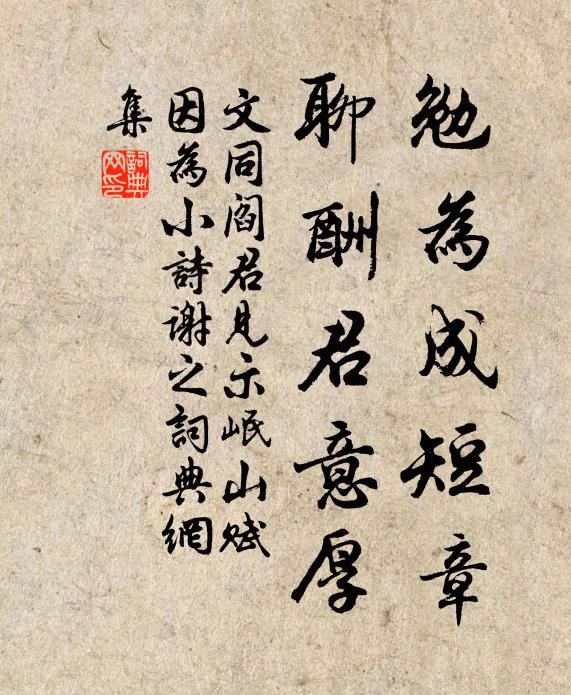 勉為成短章
聊酬君意厚
文同閻君見示岷山賦
因為小詩謝之詞典網
集
詞典網印